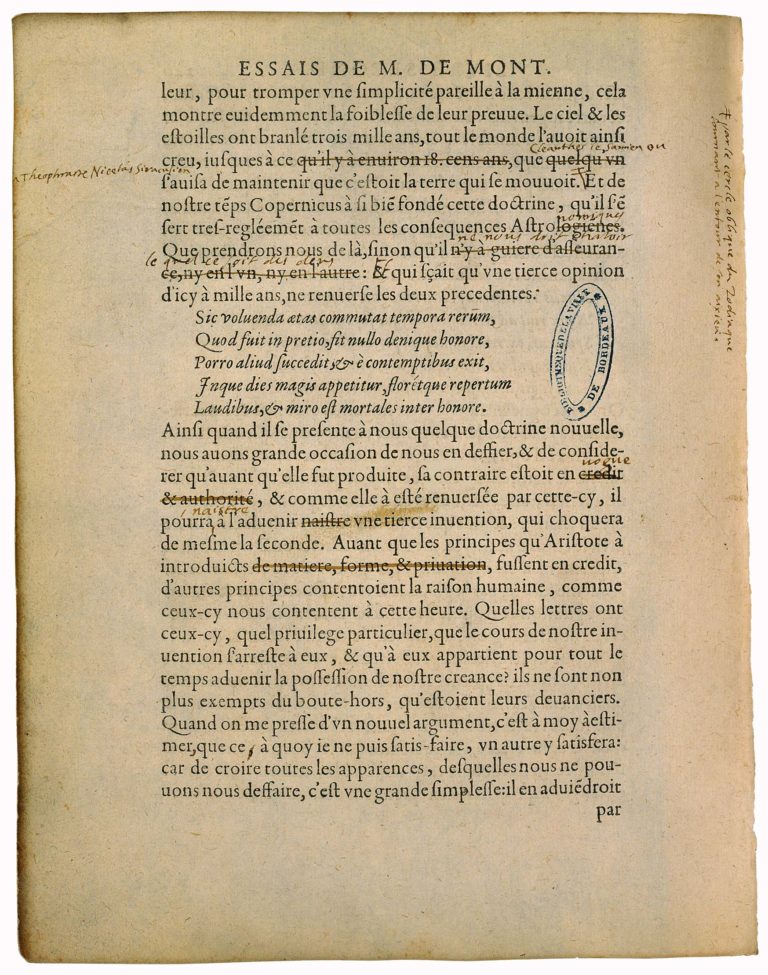 ESSAIS DE M. DE MONT.
leur, pour tromper vne ſimplicité pareille à la mienne, cela
montre euidemment la foibleſſe de leur preuue. Le ciel & les
eſtoilles ont branlé trois mille ans, tout le monde l'auoit ainſi
Cleanthes le samien ou
creu, iuſques à ce qu'il y à enuiron 18. cens ans, que quelqu'vn
Theophraste Nicetas Siracusien
ſ'auiſa de maintenir que c'eſtoit la terre qui ſe mouuoit. Et de
+ par le cercle oblique du Zodiaque
tournant a l'entour de son aixieu
noſtre tẽps Copernicus à ſi biẽ fondé cette doctrine, qu'il ſ'ẽ
nomiques
ſert tres-regléemẽt à toutes les conſequences Aſtrologienes.
ne nous doit chaloir
Que prendrons nous de là, ſinon qu'il n'y à guiere d'aſſeuran-
le quel ce soit des deus
ce, ny en l'vn, ny en l'autre: Et qui ſçait qu'vne tierce opinion
d'icy à mille ans, ne renuerſe les deux precedentes.
Sic voluenda ætas commutat tempora rerũm,
Quod fuit in pretio, fit nullo denique honore,
Porro aliud ſuccedit, & è contemptibus exit,
Inque dies magis appetitur, florétque repertum
Laudibus, & miro eſt mortales inter honore.
BIBLIOTHEQUE DE LA VILLE
DE BORDEAUX
Ainſi quand il ſe preſente à nous quelque doctrine nouuelle,
nous auons grande occaſion de nous en deffier, & de conſide-
vogue
rer qu'auant qu'elle fut produite, ſa contraire eſtoit en credit
& authorité, & comme elle à eſté renuerſée par cette-cy, il
naistre
pourra à l'aduenir naiſtre vne tierce inuention, qui choquera
de meſme la ſeconde. Auant que les principes qu'Ariſtote à
introduicts de matiere, forme, & priuation, fuſſent en credit,
d'autres principes contentoient la raiſon humaine, comme
ceux-cy nous contentent à cette heure. Quelles lettres ont
ceux-cy, quel priuilege particulier, que le cours de noſtre in-
uention ſ'arreſte à eux, & qu'à eux appartient pour tout le
temps aduenir la poſſeſſion de noſtre creance? ils ne ſont non
plus exempts du boute-hors, qu'eſtoient leurs deuanciers.
Quand on me preſſe d'vn nouuel argument, c'eſt à moy àeſti-
mer, que ce, à quoy ie ne puis ſatis-faire, vn autre y ſatisfera:
car de croire toutes les apparences, deſquelles nous ne pou-
uons nous deffaire, c'eſt vne grande ſimpleſſe: il en aduiẽdroit
par